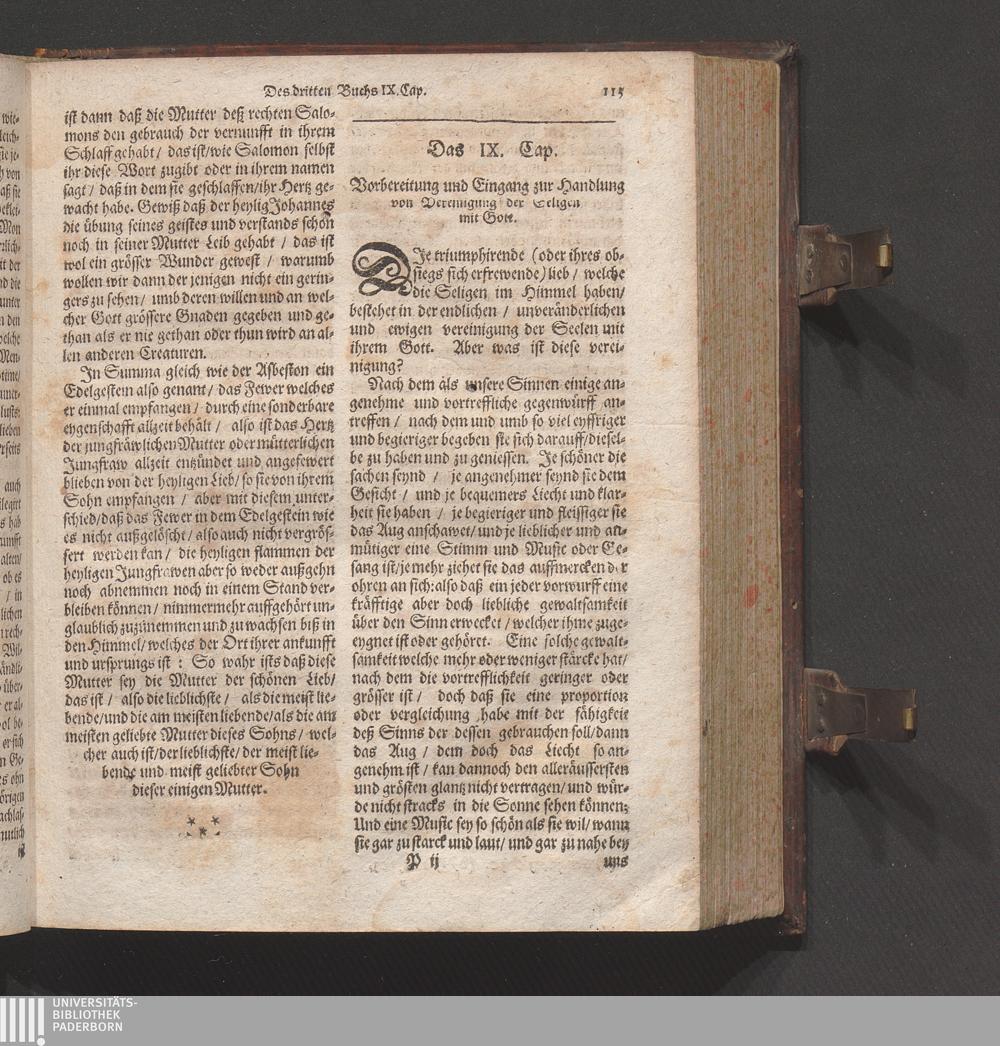 Des dritten Buchs IX. Cap. 115
ist dann daß die Mutter deß rechten Salo-
mons den gebrauch der vernunfft in ihrem
Schlaff gehabt / das ist / wie Salomon selbst
ihr diese Wort zugibt oder in ihrem namen
sagt / daß in dem sie geschlaffen / ihr Hertz ge-
wacht habe. Gewiß daß der heylig Johannes
die übung seines geistes und verstands schon
noch in seiner Mutter Leib gehabt / das ist
wol ein grösser Wunder gewest / warumb
wollen wir dann der jenigen nicht ein gerin-
gers zu sehen / umb deren willen und an wel-
cher Gott grössere Gnaden gegeben und ge-
than als er nie gethan oder thun wird an al-
len anderen Creaturen.
In Summa gleich wie der Asbeston ein
Edelgestein also genant / das Fewer welches
er einmal empfangen / durch eine sonderbare
eygenschafft allzeit behält / also ist das Hertz
der jungfräwlichen Mutter oder mütterlichen
Jungfraw allzeit entzündet und angefewert
blieben von der heyligen Lieb / so sie von ihrem
Sohn empfangen / aber mit diesem unter-
schied / daß das Fewer in dem Edelgestein wie
es nicht außgelöscht / also auch nicht vergrös-
sert werden kan / die heyligen flammen der
heyligen Jungfrawen aber so weder außgehn
noch abnemmen noch in einem Stand ver-
bleiben können / nimmermehr auffgehört un-
glaublich zuzunemmen und zu wachsen biß in
den Himmel / welches der Ort ihrer ankunfft
und ursprungs ist : So wahr ists daß diese
Mutter sey die Mutter der schönen Lieb /
das ist / also die lieblichste / als die meist lie-
bende / und die am meisten liebende / als die am
meisten geliebte Mutter dieses Sohns / wel-
cher auch ist / der lieblichste / der meist lie-
bende und meist geliebter Sohn
dieser einigen Mutter.
Das IX. Cap.
Vorbereitung und Eingang zur Handlung
von Vereinigung der Seligen
mit Gott.
DIe triumphirende (oder ihres ob-
siegs sich erfrewende) lieb / welche
die Seligen im Himmel haben /
bestehet in der endlichen / unveränderlichen
und ewigen vereinigung der Seelen mit
ihrem Gott. Aber was ist diese verei-
nigung?
Nach dem als unsere Sinnen einige an-
genehme und vortreffliche gegenwürff an-
treffen / nach dem und umb so viel eyffriger
und begieriger begeben sie sich darauff / diesel-
be zu haben und zu geniessen. Je schöner die
sachen seynd / je angenehmer seynd sie dem
Gesicht / und je bequemers Liecht und klar-
heit sie haben / je begieriger und fleissiger sie
das Aug anschawet / und je lieblicher und an-
mütiger eine Stimm und Music oder Ge-
sang ist / je mehr ziehet sie das auffmercken der
ohren an sich: also daß ein jeder vorwurff eine
kräfftige aber doch liebliche gewaltsamkeit
über den Sinn erwecket / welcher ihme zuge-
eygnet ist oder gehöret. Eine solche gewalt-
samkeit welche mehr oder weniger stärcke hat /
nach dem die vortrefflichkeit geringer oder
grösser ist / doch daß sie eine proportion
oder vergleichung habe mit der fähigkeit
deß Sinns der dessen gebrauchen soll / dann
das Aug / dem doch das Liecht so an-
genehm ist / kan dannoch den alleräussersten
und grösten glantz nicht vertragen / und wür-
de nicht stracks in die Sonne sehen können;
Und eine Music sey so schön als sie wil / wann
sie gar zu starck und laut / und gar zu nahe bey
P ij uns
UNIVERSITÄTS-
BIBLIOTHEK
PADERBORN